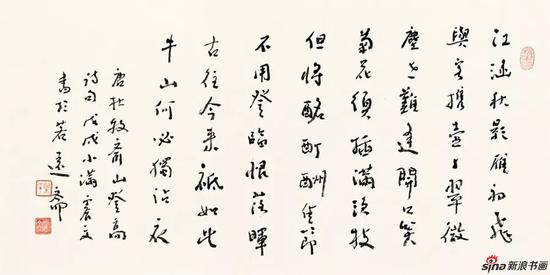 江涵秋影雁初飛
與客携壺上翠微
塵世難逢開口笑
菊花須插滿頭歸
但將酩酊酬佳節
不用登臨恨落暉
古往今來祇如此
牛山何必獨沾衣
唐杜牧齊山登高
詩句戊戌小滿震文
書於若遠齋
sina新浪书画